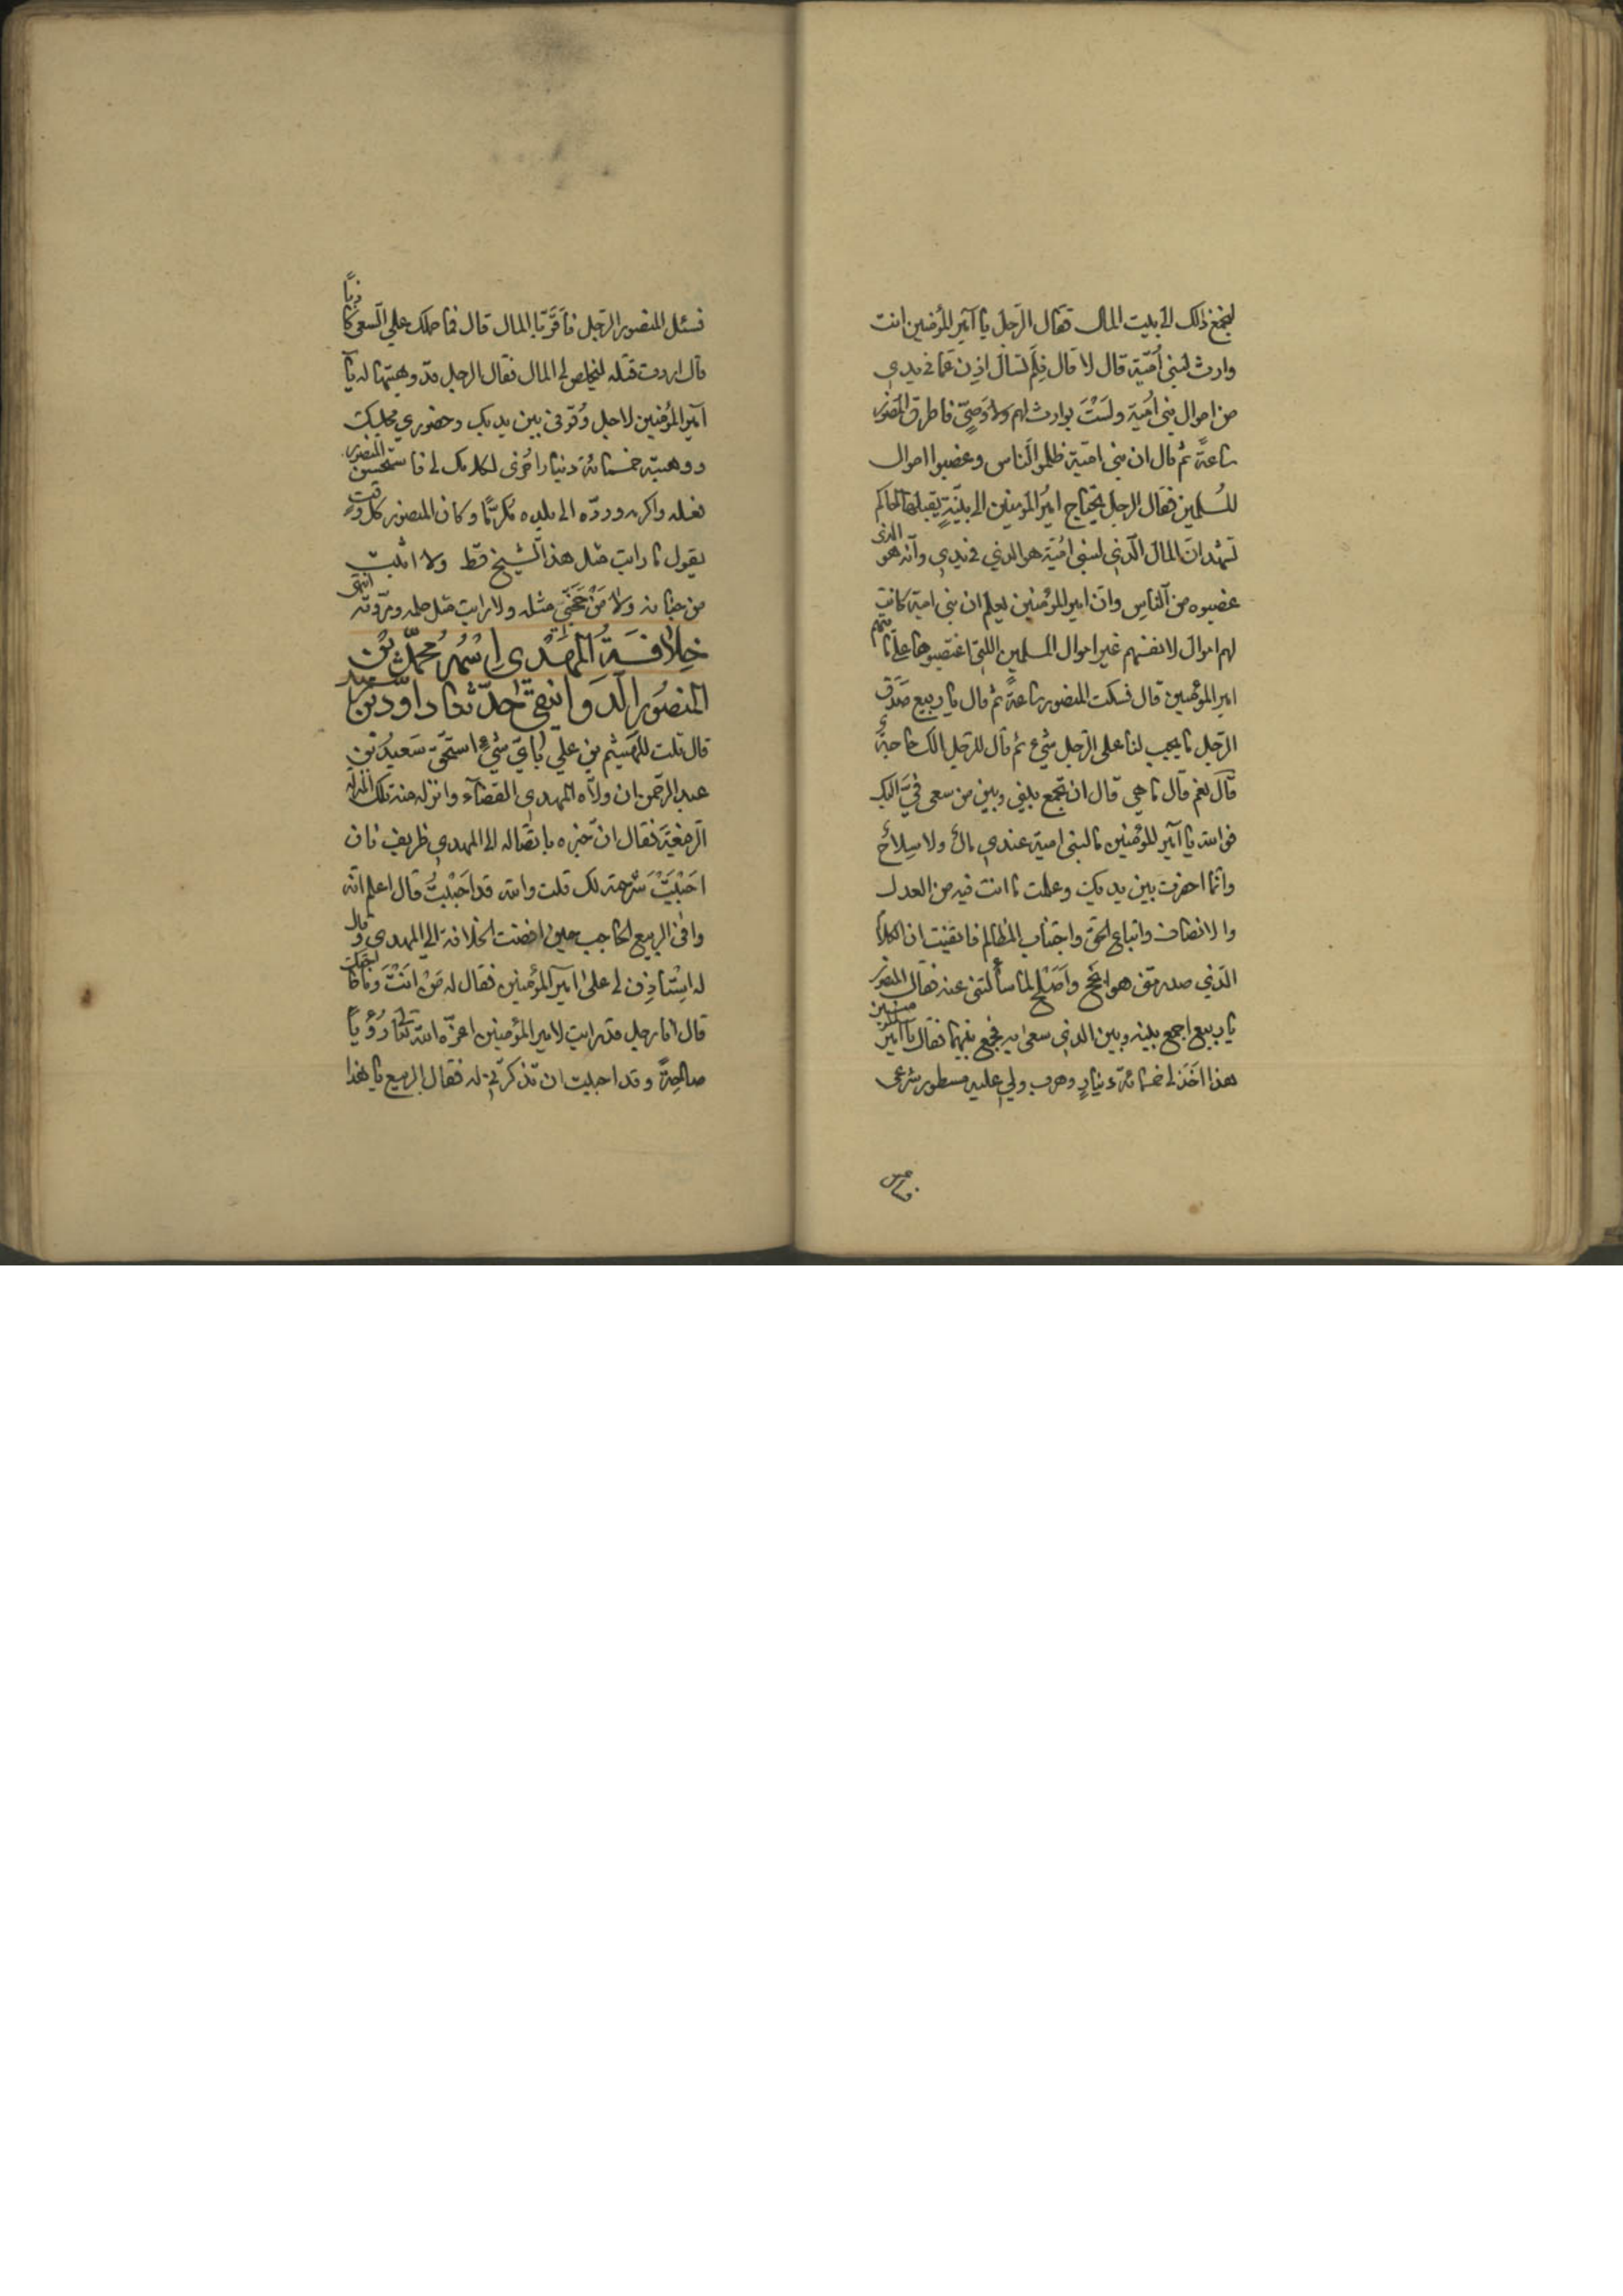 ليجمع ذلك الى بيت المال فقال الرجل يا امير المؤمنين انت
وارث لبنى اُمَيّة قال لا قال فِلَم تسأل اذن عما فى يدي
من اموال بني اُمية ولَسْتَ بوارث لهم ولا وَصِيّ فاطرق المنصور
ساعةً ثم قال ان بني امية ظلموا الناس وغصبوا اموال
المُسلمين فقال الرجل يحتاج امير المؤمنين الى بيّنَةٍ يقبلها الحاكم
تشهد ان المال الّذي لبنى اُميّة هو الذي في يدي وانه هو الذى
غصبوه من الناس وان امير المؤمنين يعلم ان بني امية كانت
لهم اموال لانفسهم غير اموال المسلمين اللتى اغتصبوها على ما يتهم
امير المؤمنين قال فسكت المنصور ساعةً ثم قال يا ربيع صَدَق
الرجل ما يجب لنا على الرجل شيء ثم قال للرجل الك حاجةٌ
قال نعم قال ما هي قال ان تجمع بيني وبين من سعى فيَّ اليك
فوالله يا امير المؤمنين ما لبنى امية عندي مالٌ ولا سِلاحٌ
وانما احضرت بين يديك وعلمت ما انت فيه من العدل
والانصاف واتباع الحق واجتناب المظالم فايقنت ان الكلام
الذي صدر مني هو انجح واَصْلح لما سألتنى عنه فقال المنصور
يا ربيع اجمع بينه وبين الذي سعى به فجمع بينهما فقال يا امير المؤمنين
هذا اَخَذَ لى خمسمائة دينارٍ وهرب ولي عليه مسطور شرعى
فسئل
فسئل المنصور الرجل فأقرّ بالمال قال فما حملك على السعى كاذبًا
قال اردت قتله ليخلص لى المال فقال الرجل قد وهبتها له يا
امير المؤمنين لاجل وُقوفى بين يديك وحضوري مجلسك
ووهبته خمسمائة دينار اُخرى لكلامك لى فاستحسن المنصور
فعله واكرمه وردّه الى بلده مُكرّمًا وكان المنصور كل وقتٍ
يقول ما رايت مثل هذا الشيخ قط ولا اثبت
من جنانه ولا مَنْ حَجّني مثله ولا رايت مثل حلمه ومروّته انتهى
خِلافَةُ المَهْدى اِسْمُهُ مُحمّد بْن
المنصُور الدَوانيقىّ حدّثنا داوُد بْن سعيد
قال قلت للهَيْثم بن علي بأيّ شيءٍ استحقّ سَعيدُ بْن
عبد الرحمن ان ولاّه المهدي القضآء وانزله منه تلك المنزلة
الرفيعَة فقال ان خبره باتصاله الى المهدي ظريف فان
احبَبْتَ شرحته لك قلت والله قد احبَبْتُ قال اعلم انّه
وافى الربيع الحاجب حين افضت الخلافة الى المهدي وقال
له اِسْتأذِن لى على امير المؤمنين فقال له مَنْ انتْ وما حاجتك
قال انا رجل قد رايت لامير المؤمنين اعزّه الله تعالى رُؤيا
صالحةً وقد احببت ان تذكرني له فقال الربيع يا هذا